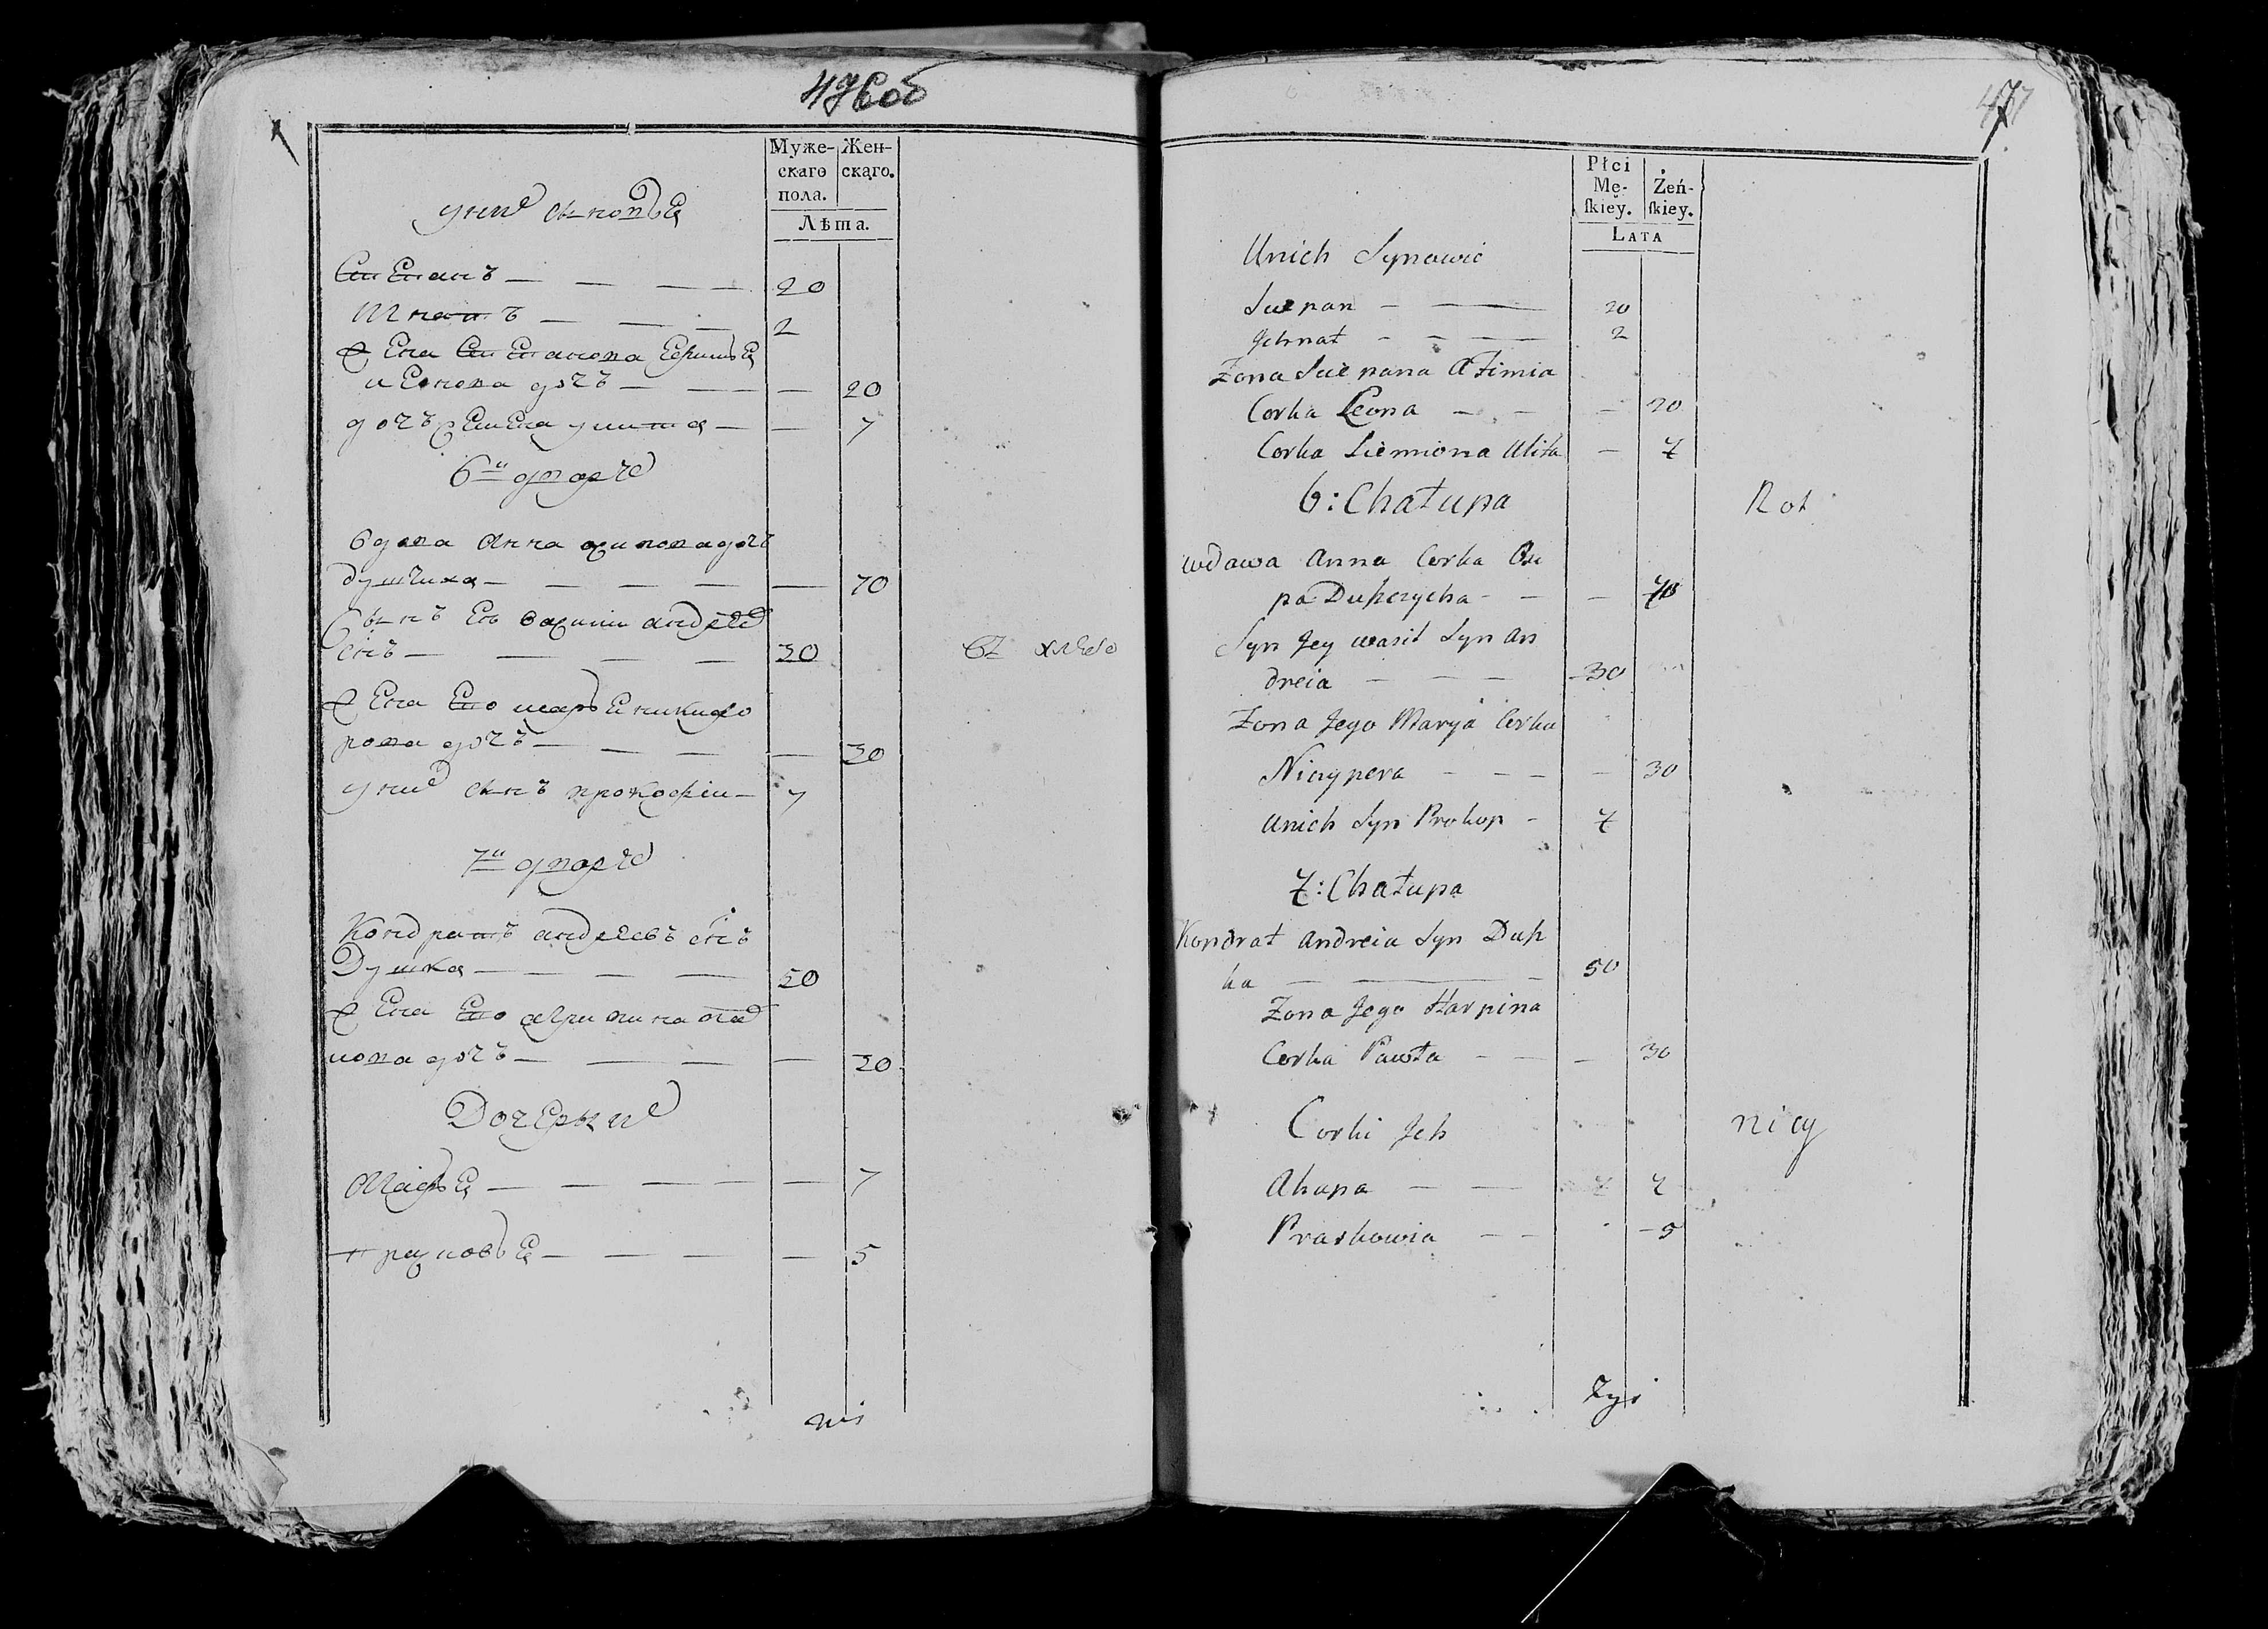 476об
Муже-
скаго
пола.
Жен-
скаго.
Лѣта.
у них сыновья
Степанъ — — — 20
Игнатъ — — — 2
жена Степанова Ефимья
Леонова дочъ — — — 20
дочъ Семена улита — — 7
6й дворъ
вдова Анна дочъ
душчиха — — — — 70
Сынъ ея Василий андреев
снъ — — — — 30
жена его марья никифо
рова дочъ — — — — 30
у них снъ прокофiй — 7
7й дворъ
Кондратъ андреевъ снъ
Душка — — — — 50
жена его агрипина
дочъ — — — — 30
Дочери их
Агафья — — — — — 7
прасковья — — — — 5
477
Płci
Mę-
ſkiey.
Żeń-
ſkiey.
LATA
Unich Synowie
Suepan — — 20
Jehnat — — — 2
Zona Suepana Afimia
Corka Leona — — — 20
Corka Siemiona Ulita — 7
6: Chałupa
wdawa Anna Corka Osi
pa Duszczycha — — — 70
Syn Jey wasil Syn An
dreia — — — 30
Zona Jego Marya Corka
Niczypera — — — — 30
Unich Syn Prokop — 7
7: Chałupa
Kondrat Andreia Syn Dusz
ka — — 50
Zona Jego Harpina
Corka Pawła — — — 30
Corki Jch
Ahapa — — 7
Praskowia — — — 5